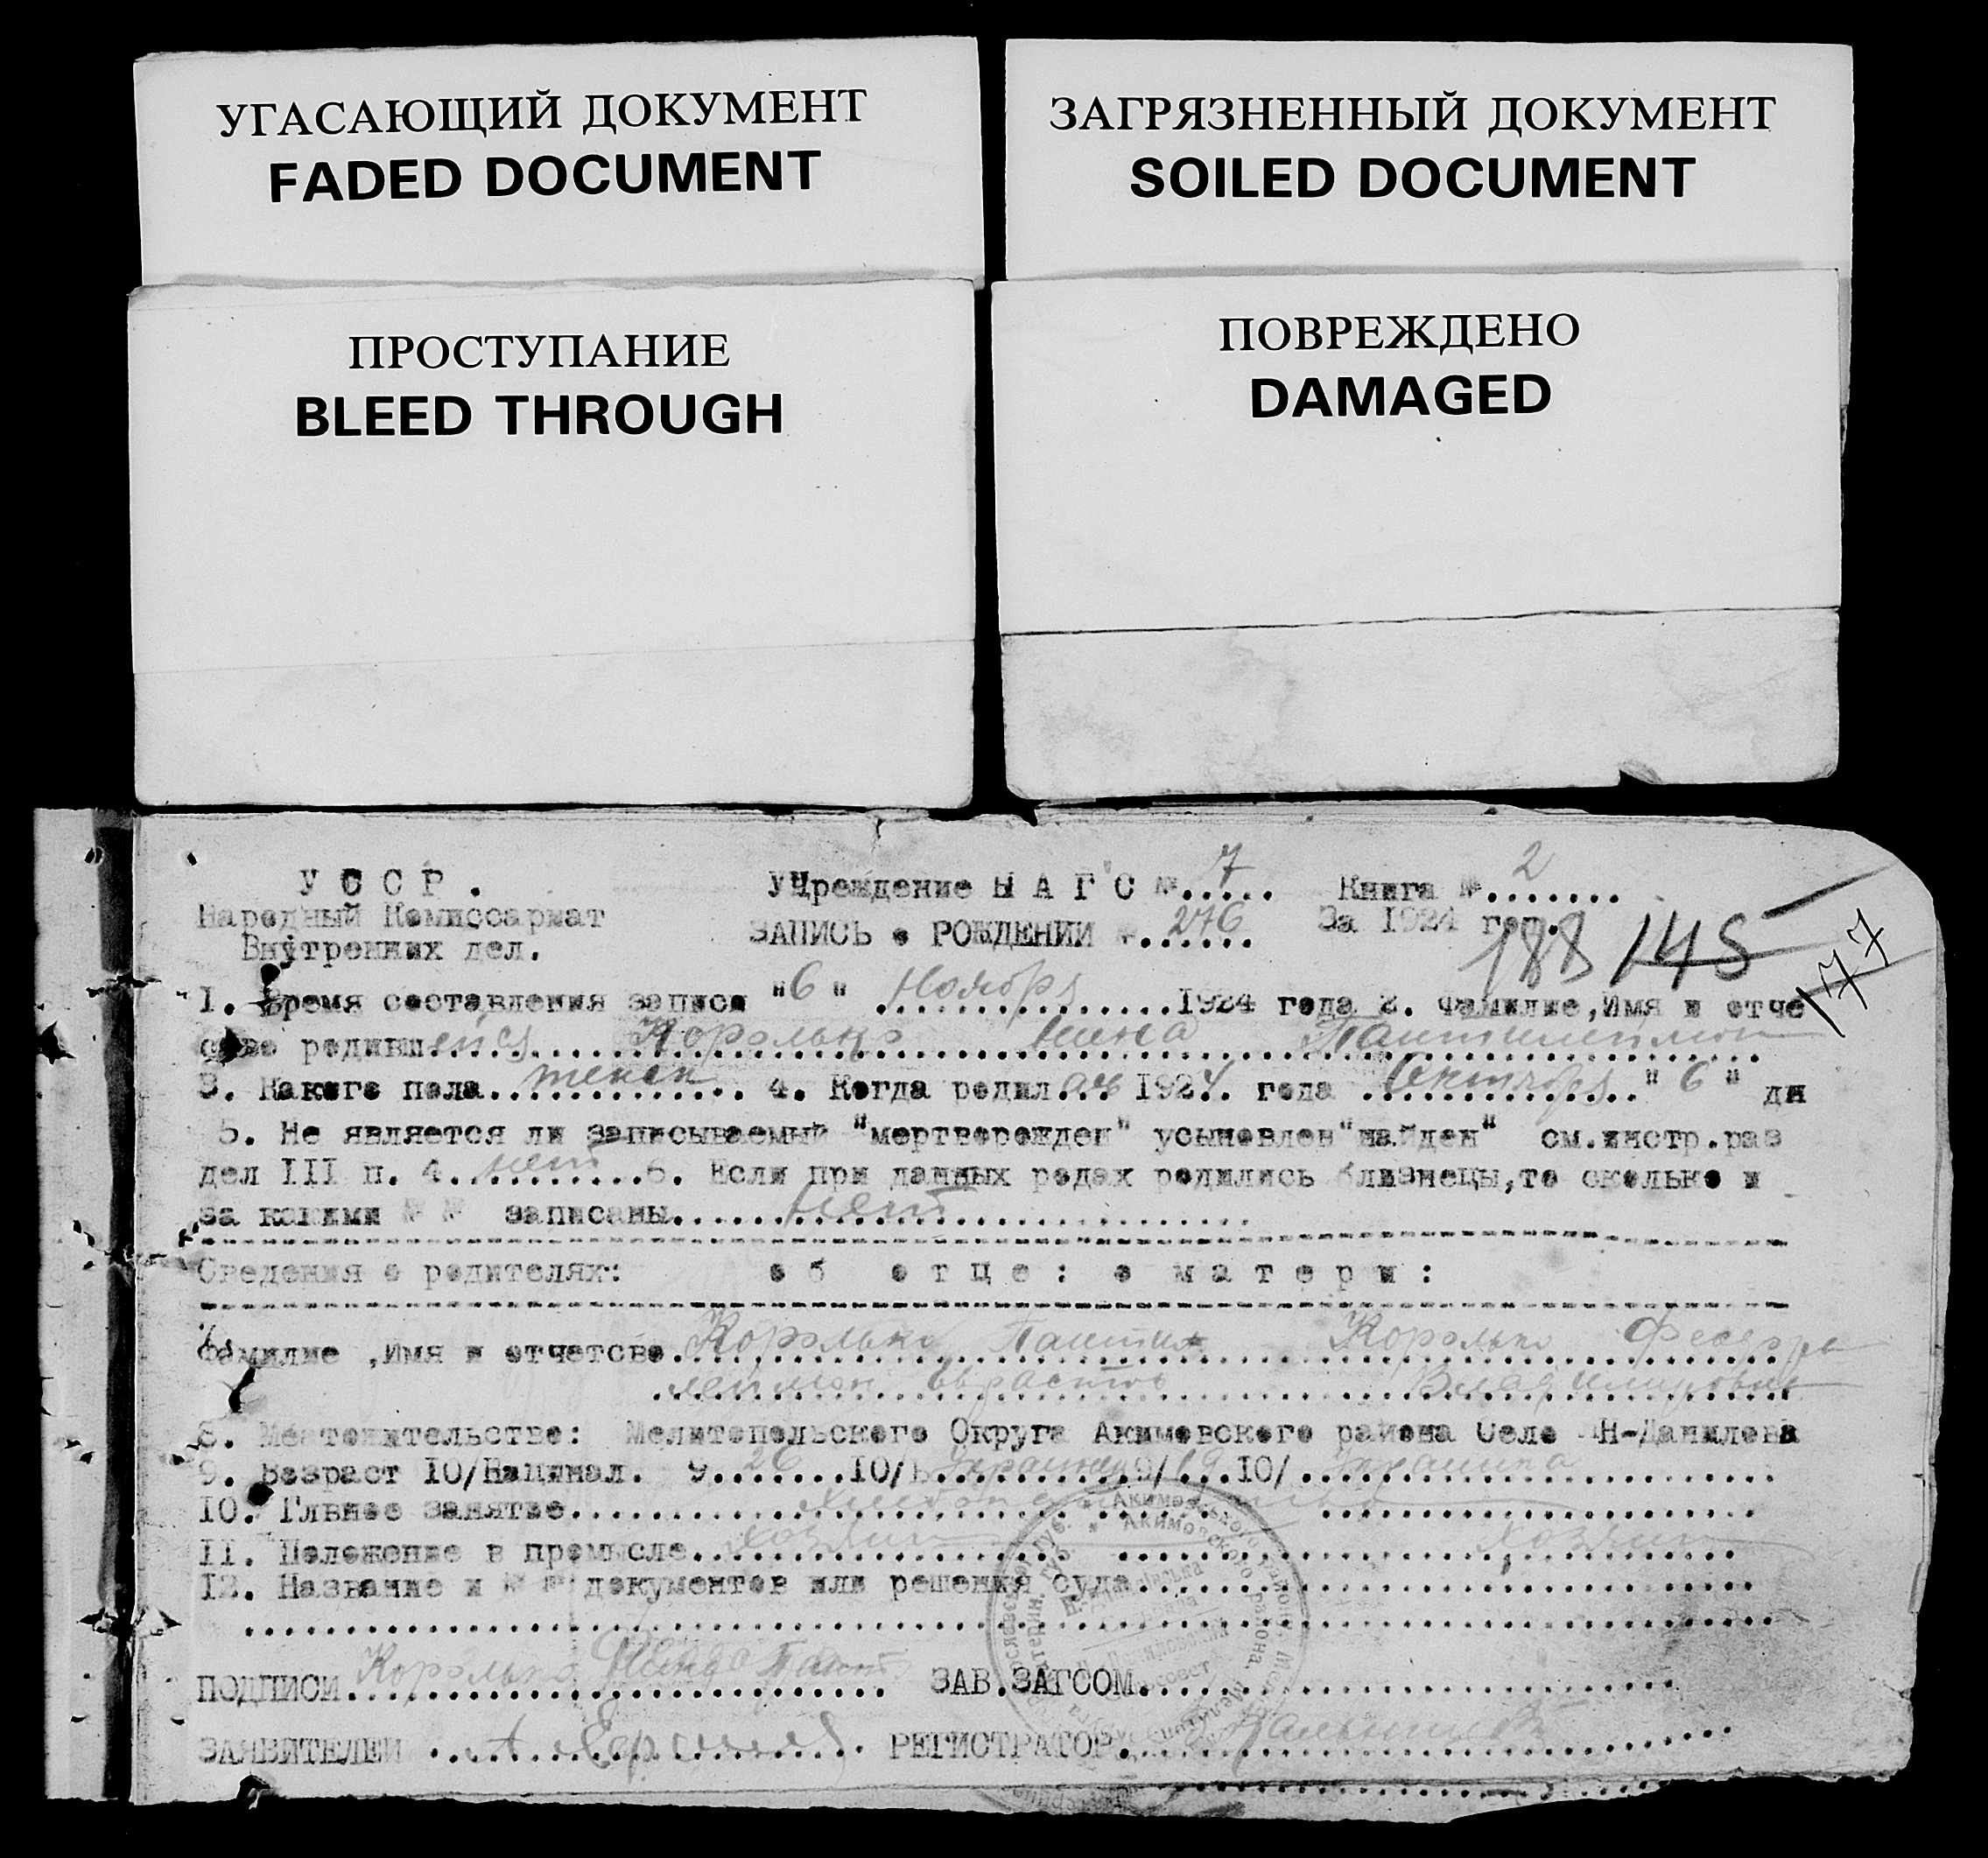 УГАСАЮЩИЙ ДОКУМЕНТ
FADED DOCUMENT
ЗАГРЯЗНЕННЫЙ ДОКУМЕНТ
SOILED DOCUMENT
ПРОСТУПАНИЕ
BLEED THROUGH
ПОВРЕЖДЕНО
DAMAGED
У С С Р . Учреждение З А Г С №..7... Книга №..2.....
Народный Комиссариат ЗАПИСЬ о РОЖДЕНИИ №.276.... За 1924 год.
Внутренних дел. 188 145 177
1. Время составления записи "6" Ноября 1924 года 2. Фамилие,Имя и отче
ство родивш.ейся Королько
3. Какого пола женск 4. Когда родилась 1924. года Октября "6" дн
5. Не является ли записываемый "мертворожден" усыновлен"найден" см.инстр.раз
дел III п. 4.нет 6. Если при данных родах родились близнецы,то сколько и
за какими № № записаны нет
Сведения о родителях: об отце: о матери:
7. Фамилие ,Имя и отчетсво. Королько Пантил Королько
леймон Владимировна
8. Местожительство: Мелитопольского Округа Акимовского района Село Н-Данилова
9. Возраст 10/Национал. 9.26 10/ 9/19 10/
10. Глвное занятие
11. Положение в промысле
12. Название и № № документов или решения суда
ПОДПИСИ Королько ЗАВ.ЗАГСОМ
ЗАЯВИТЕЛЕЙ РЕГИСТРАТОР